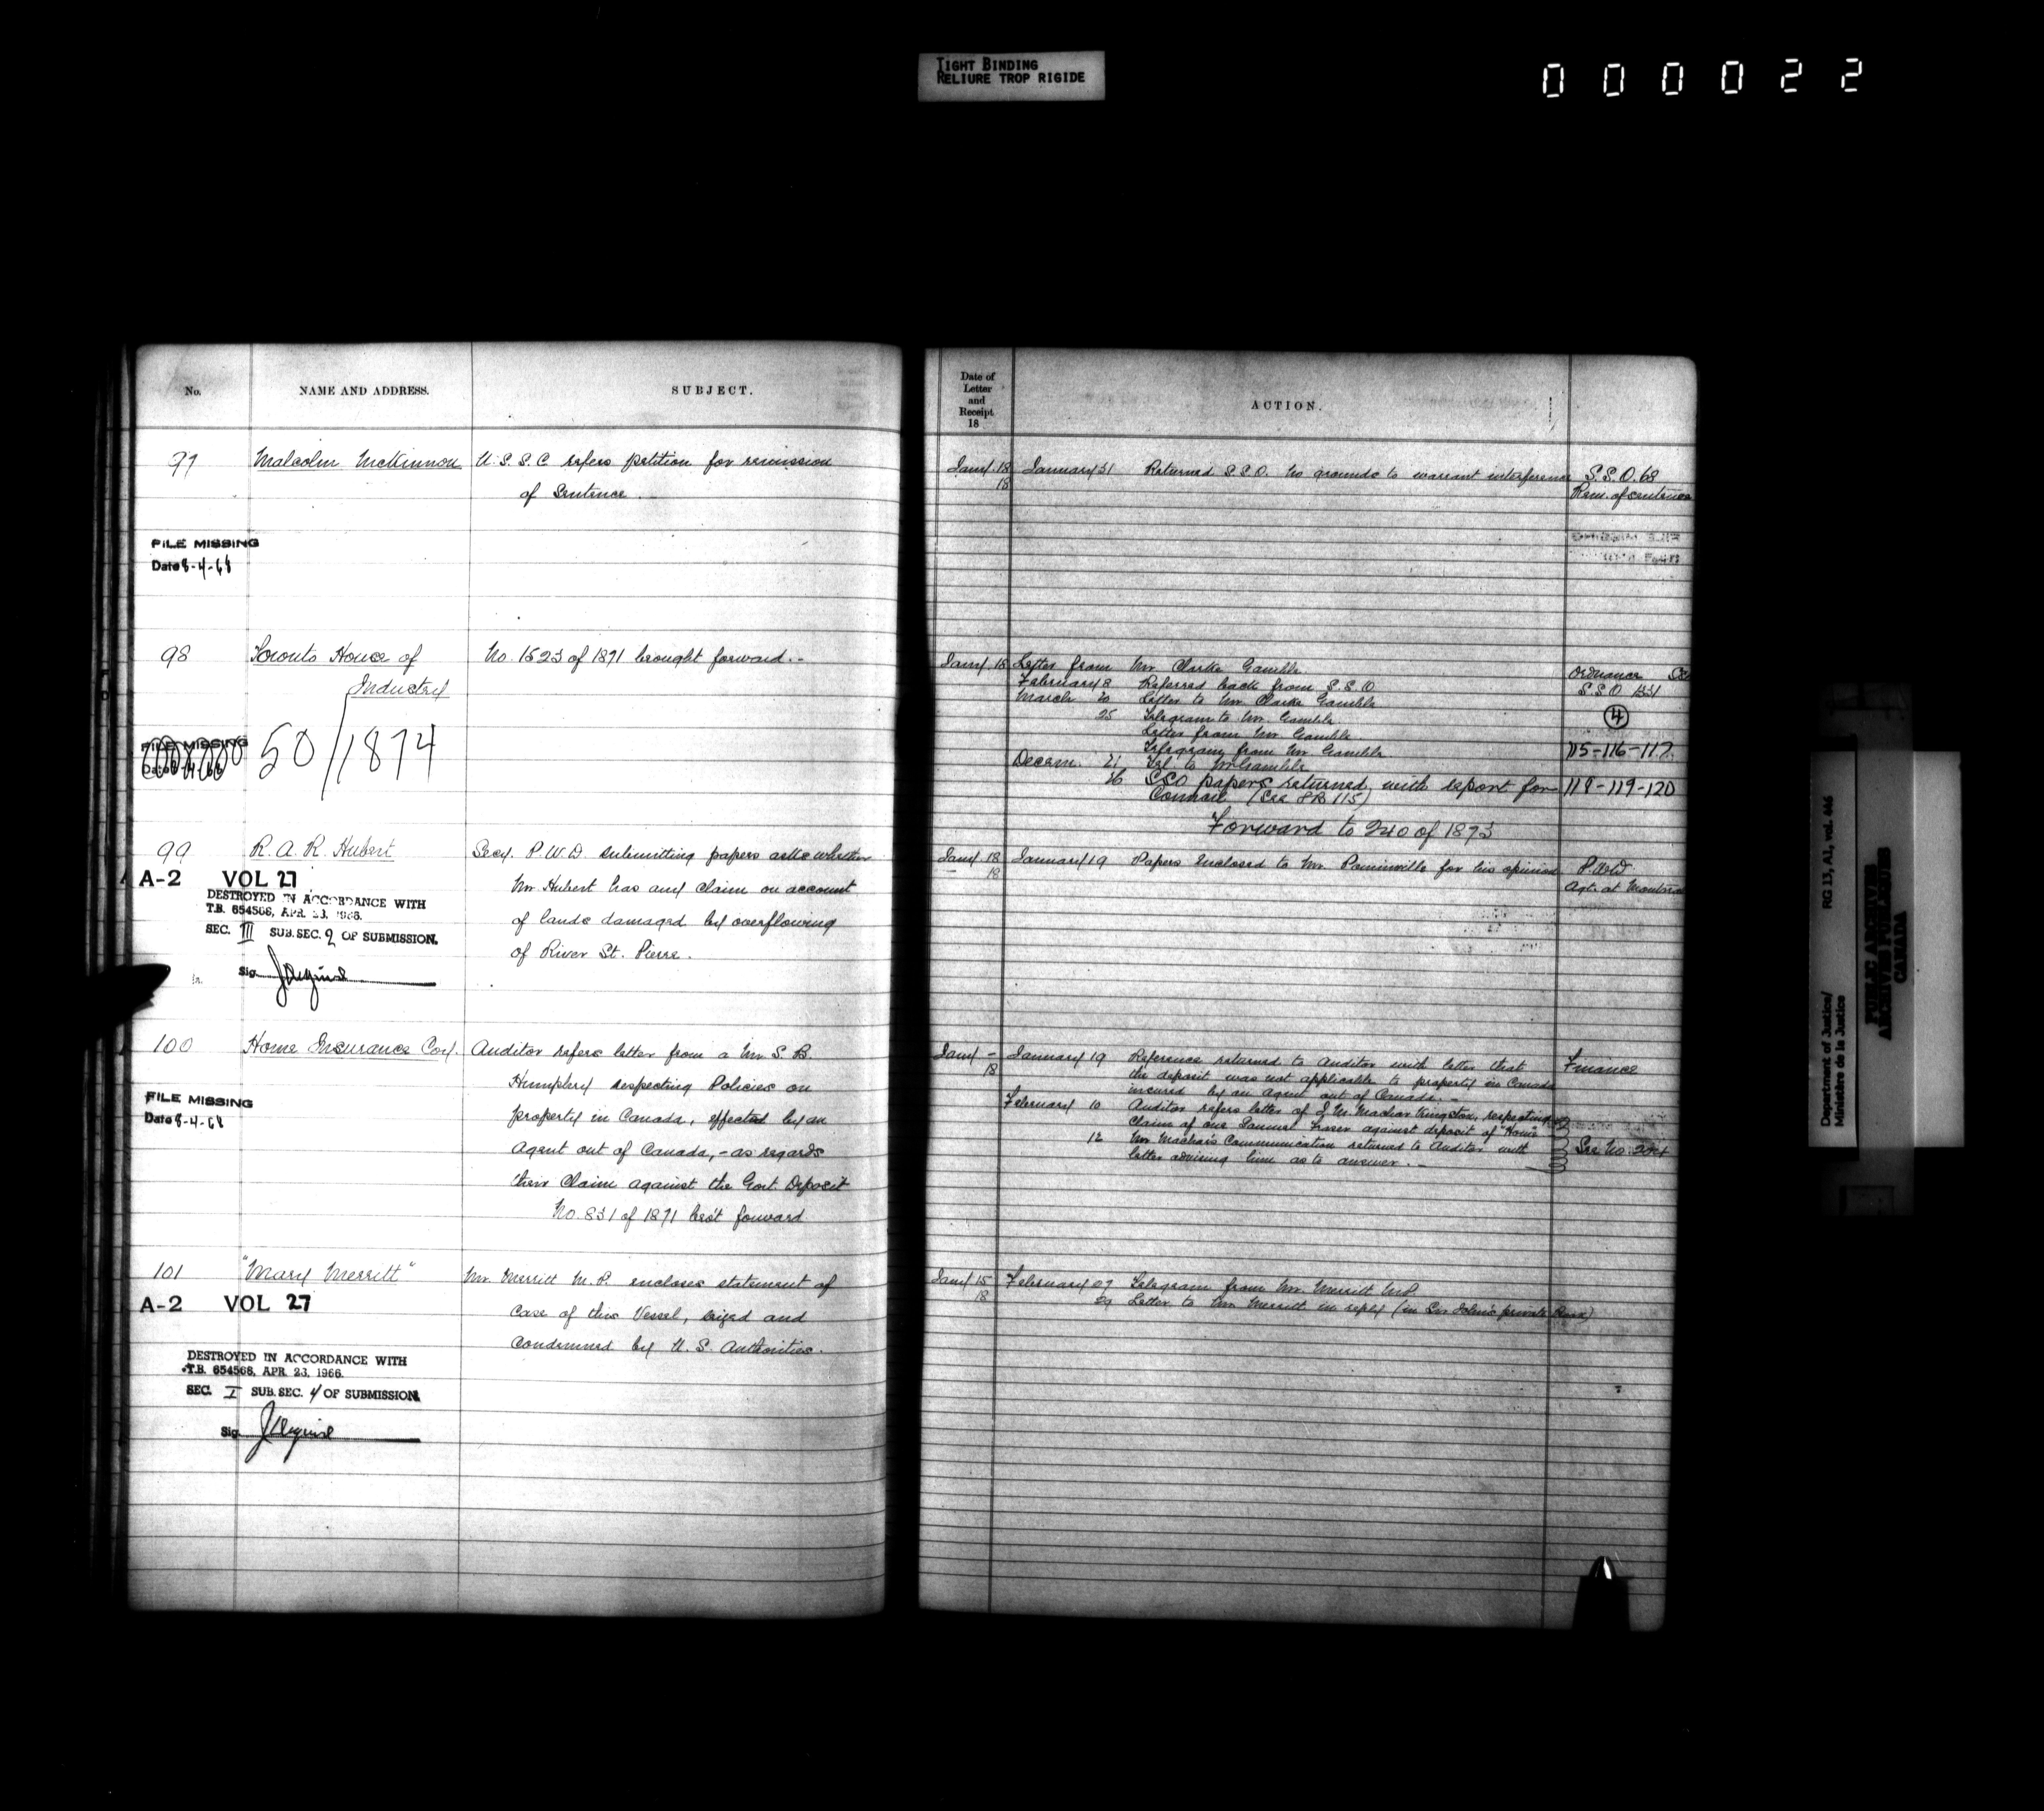 TIGHT BINDING
RELIURE TROP RIGIDE
000022
No.
NAME AND ADDRESS.
SUBJECT.
97
Malcolm McKinnon
U.S.S.C. refers petition for remission
of Sentence.
FILE MISSING
Date 8-4-68
98
Toronto House of
Industry
No. 1523 of 1871 brought forward.-
FILE MISSING
50/1874
99
R. A. R. Hubert
Secy. P.W.D. submitting papers asks whether
Mr. Hubert has any claim on account
of lands damaged by overflowing
of River St. Pierre.
A-2 VOL 27
DESTROYED IN ACCORDANCE WITH
T.B. 654568, APR. 23, 1966.
SEC. III SUB. SEC. 2 OF SUBMISSION.
Sig.
100
Home Insurance Coy.
Auditor refers letter from a Mr. S. B.
Humphrey respecting Policies on
property in Canada, effected by an
Agent out of Canada,- as regards
their Claim against the Govt. Deposit
No. 831 of 1871 bro't forward
FILE MISSING
Date 8-4-68
101
"Mary Merritt"
Mr. Merritt M.P. encloses statement of
Case of this Vessel, seized and
Condemned by U.S. Authorities.
A-2 VOL 27
DESTROYED IN ACCORDANCE WITH
T.B. 654568, APR. 23, 1966.
SEC. I SUB. SEC. 4 OF SUBMISSION.
Sig.
Date of
Letter
and
Receipt
18
ACTION.
Jany. 18
18
January 31 Returned S.S.O. No grounds to warrant interference
S.S.O. 68
Rem. of sentence
Jany. 18
Letter from Mr. Clarke Gamble
Ordnance
February 8 Referred back from S.S.O.
S.S.O. 1331
March 20 Letter to Mr. Clarke Gamble
4
25 Telegram to Mr. Gamble
Letter from Mr. Gamble
Telegram from Mr. Gamble
115-116-117
Decem. 21 Tel to Mr Gamble
26 SSO papers returned, with report for
118-119-120
Council (See 115)
Forward to 240 of 1873
Jany. 18
18
January 19 Papers enclosed to Mr. Pominville for his opinion
P.W.D
Agt. at Montreal
Jany -
18
January 19 Reference returned to Auditor with letter that
Finance
the deposit was not applicable to property in Canada
insured by an Agent out of Canada.-
February 10 Auditor refers letter of J. M. Machar Kingston, respecting
Claim of one Samuel Fraser against deposit of "Home"
12 Mr Machar's Communication returned to Auditor with
See No.
letter advising him as to answer.-
Jany 15
18
February 27 Telegram from Mr. Merritt MP
29 Letter to Mr Merritt in reply (in Sir John's private Book)
Department of Justice/
Ministère de la Justice
RG 13, A1, vol. 446
PUBLIC ARCHIVES
ARCHIVES PUBLIQUES
CANADA